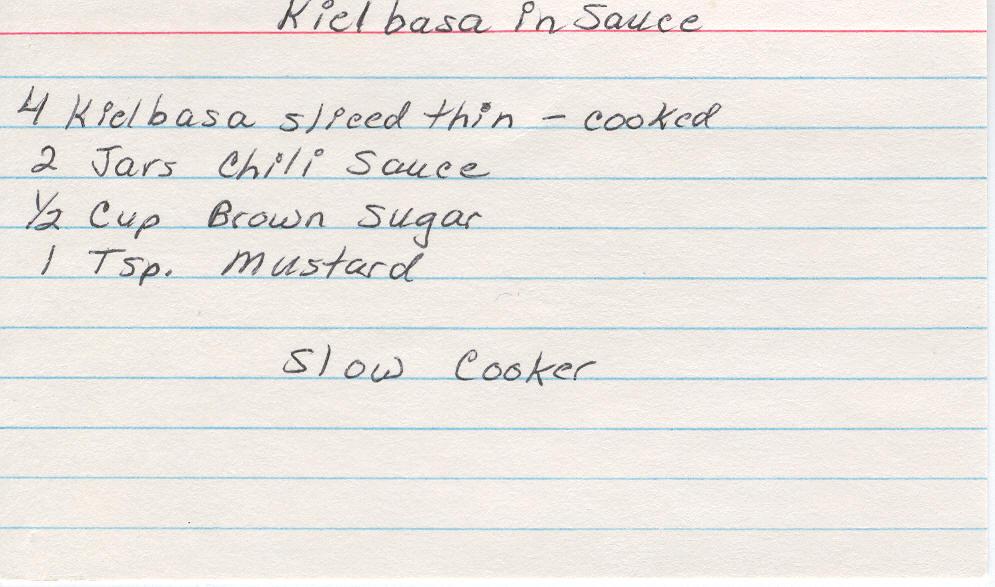 Kielbasa in Sauce
4 Kielbasa sliced thin - cooked
2 Jars Chili Sauce
1/2 Cup Brown Sugar
1 Tsp. Mustard
Slow Cooker